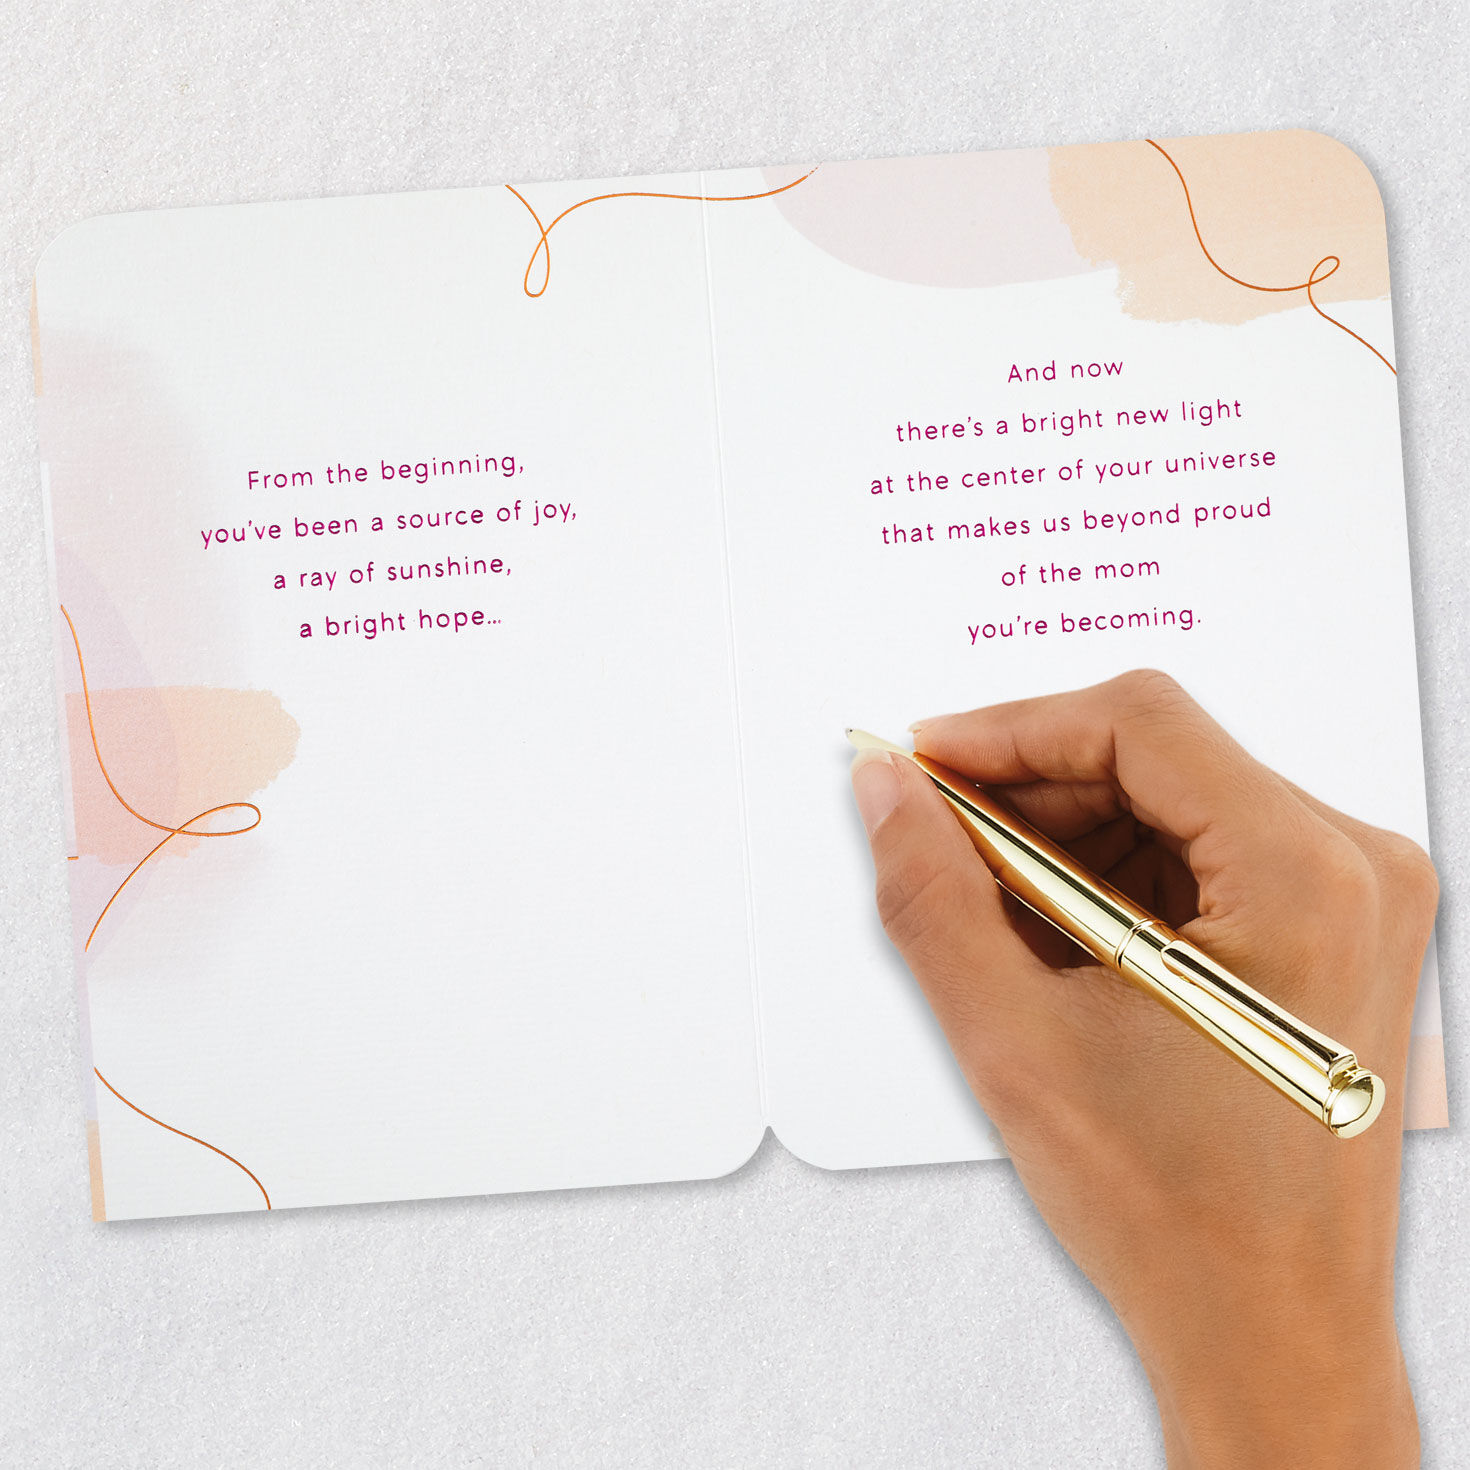 From the beginning,
you've been a source of joy,
a ray of sunshine,
a bright hope...
And now
there's a bright new light
at the center of your universe
that makes us beyond proud
of the mom
you're becoming.